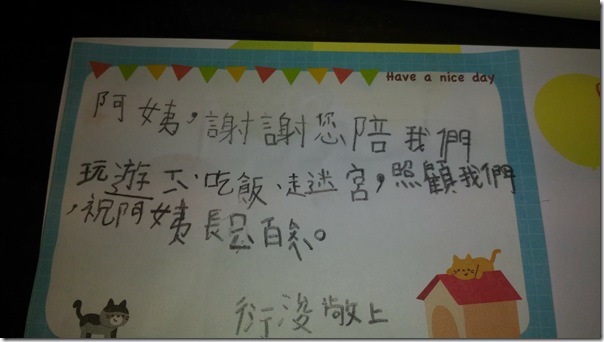 Have a nice day
阿姨，謝謝您陪我們
玩遊ㄒㄧˋ、吃飯、走迷宮，照顧我們
，祝阿姨長 百 。
衍浚敬上